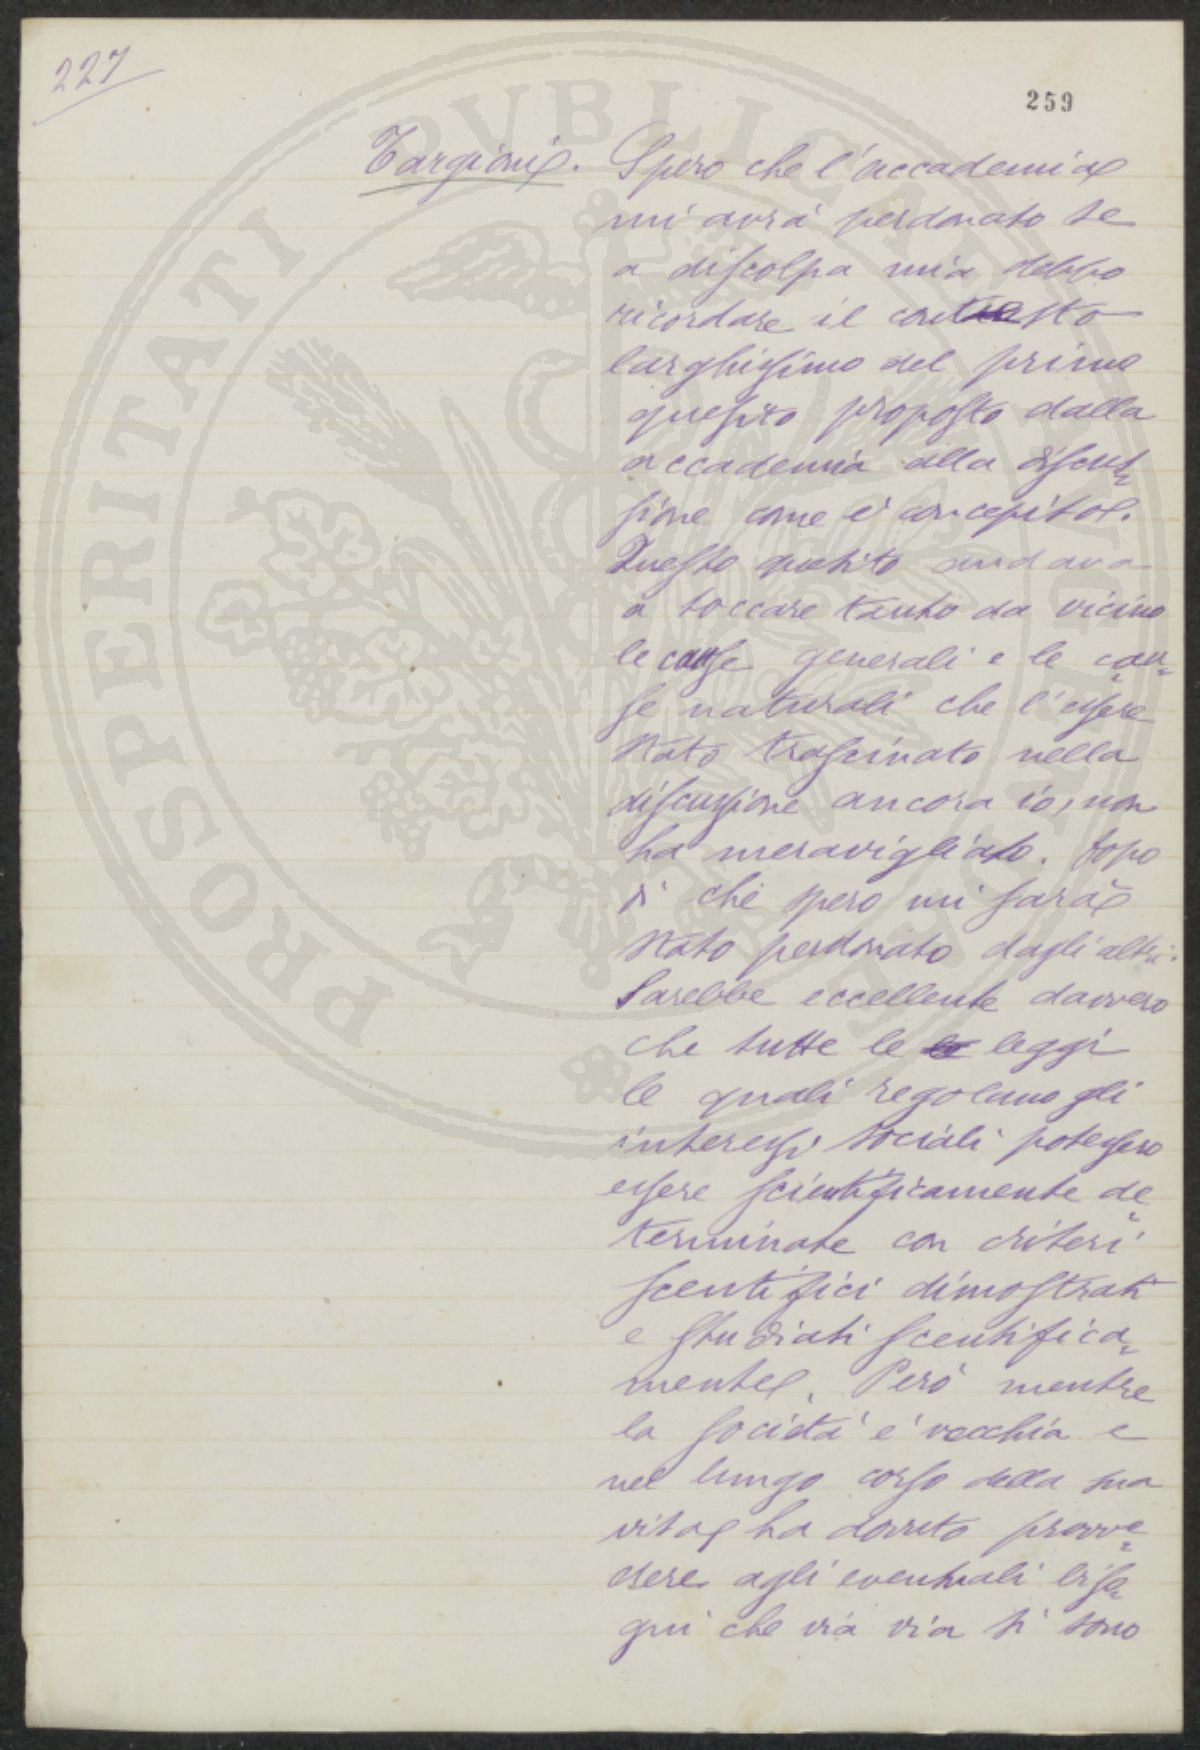 227
259
Targioni. Spero che l'accademia
mi avrà perdonato se
a discolpa mia debbo
ricordare il contesto
larghissimo del primo
quesito proposto dalla
accademia alla discus=
sione come è concepito.
Questo quesito andava
a toccare tanto da vicino
le cause generali e le cau=
se naturali che l'essere
stato trascinato nella
discussione ancora io, non
ha meravigliato. Dopo
di che spero mi sarà
stato perdonato dagli altri.
Sarebbe eccellente davvero
che tutte le le leggi
le quali regolano gli
interessi sociali potessero
essere scientificamente de=
terminate con criteri
scentifici dimostrati
e studiati scentifica=
mente. Però mentre
la società è vecchia e
nel lungo corso della sua
vita ha dovuto provve=
dere agli eventuali biso=
gni che via via si sono
PROSPERITATI PUBLICAE AUGENDAE